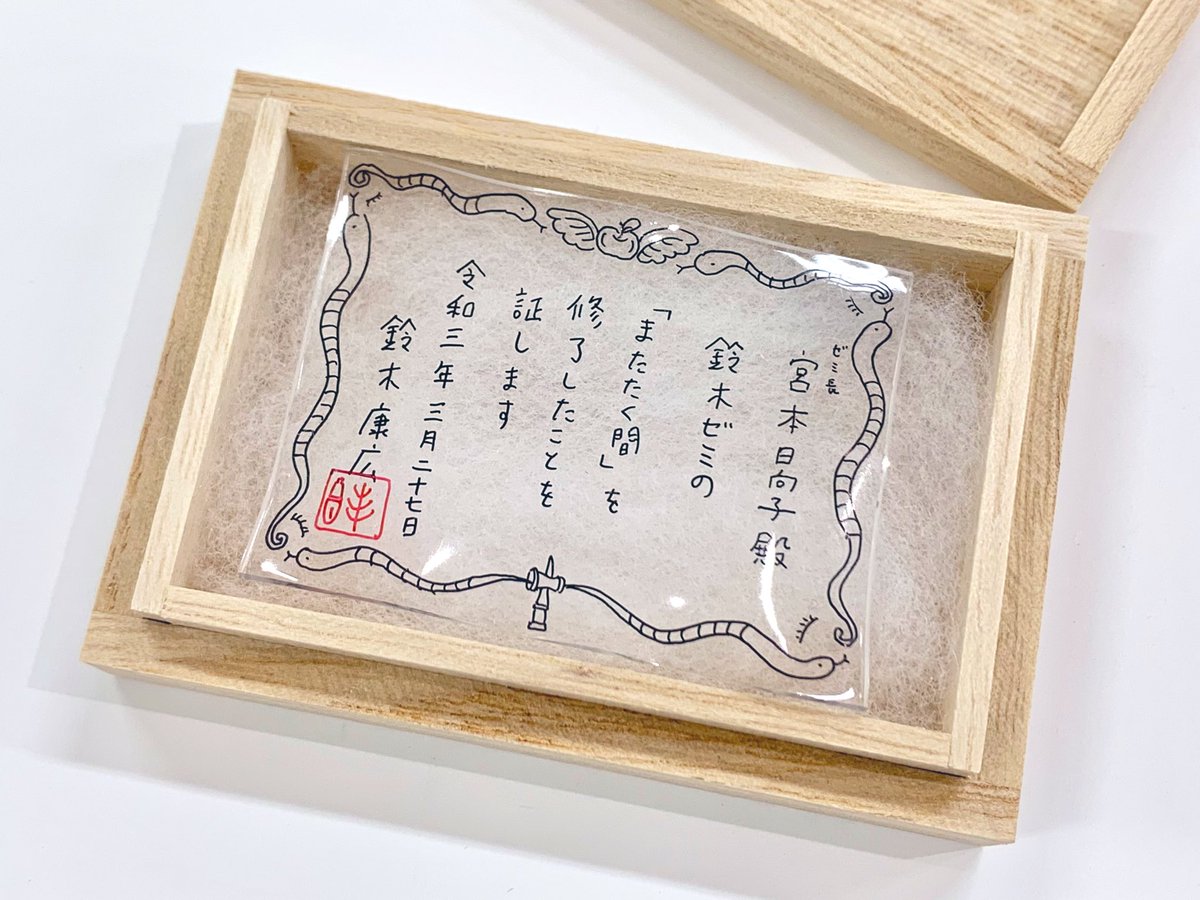 ゼミ長
宮本日向子殿
鈴木ゼミの
「またたく間」を
修了したことを
証します
令和三年三月二十七日
鈴木康広